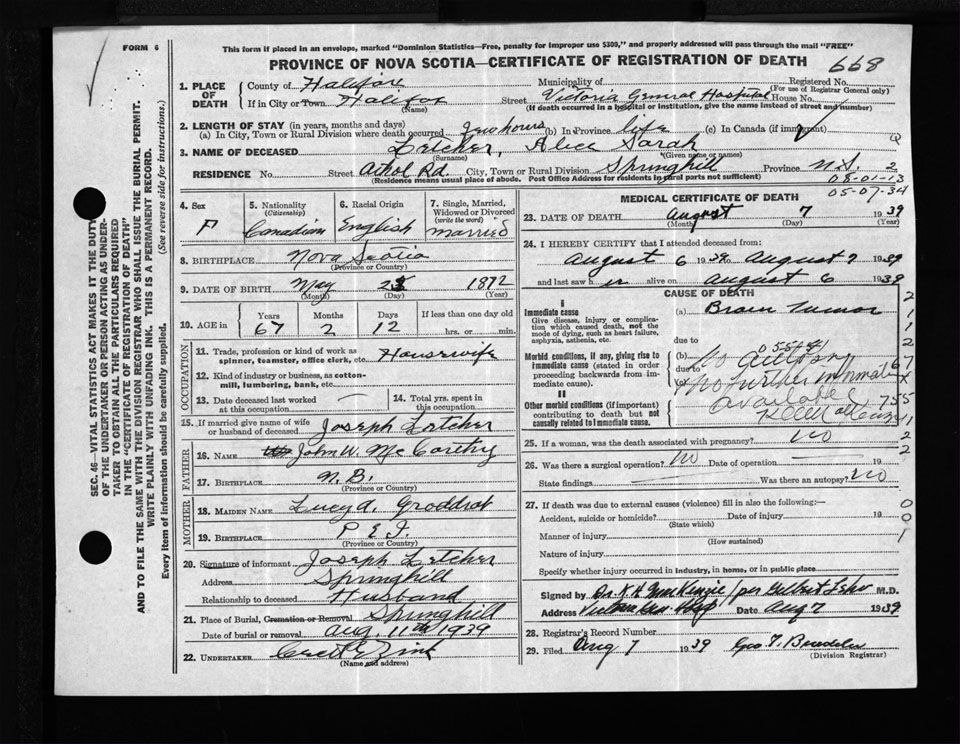 FORM 6
This form if placed in an envelope, marked "Dominion Statistics—Free, penalty for improper use $300," and properly addressed will pass through the mail "FREE"
PROVINCE OF NOVA SCOTIA—CERTIFICATE OF REGISTRATION OF DEATH 668
SEC. 46—VITAL STATISTICS ACT MAKES IT THE DUTY
OF THE UNDERTAKER OR PERSON ACTING AS UNDER-
TAKER TO OBTAIN ALL THE PARTICULARS REQUIRED
IN THE "CERTIFICATE OF REGISTRATION OF DEATH"
AND TO FILE THE SAME WITH THE DIVISION REGISTRAR WHO SHALL ISSUE THE BURIAL PERMIT.
WRITE PLAINLY WITH UNFADING INK. THIS IS A PERMANENT RECORD.
Every item of information should be carefully supplied. (See reverse side for instructions.)
1. PLACE OF DEATH County of Halifax Municipality of Registered No.
(For use of Registrar General only)
If in City or Town Halifax Street Victoria General Hospital House No.
(Name) (If death occurred in a hospital or institution, give the name instead of street and number)
2. LENGTH OF STAY (in years, months and days)
(a) In City, Town or Rural Division where death occurred hours (b) In Province life (c) In Canada (if immigrant)
3. NAME OF DECEASED Letcher, Alice Sarah
(Surname) (Given name or names)
RESIDENCE No. Street Athol Rd. City, Town or Rural Division Springhill Province N.S. 2
(Residence means usual place of abode. Post Office Address for residents in rural parts not sufficient)
08-01-13
05-07-34
4. Sex F
5. Nationality (Citizenship) Canadian
6. Racial Origin English
7. Single, Married, Widowed or Divorced (write the word) married
8. BIRTHPLACE Nova Scotia
(Province or Country)
9. DATE OF BIRTH May 25 1872
(Month) (Day) (Year)
10. AGE in Years 67 Months 2 Days 12 If less than one day old hrs. or min.
OCCUPATION
11. Trade, profession or kind of work as spinner, teamster, office clerk, etc. Housewife
12. Kind of industry or business, as cotton-mill, lumbering, bank, etc.
13. Date deceased last worked at this occupation —
14. Total yrs. spent in this occupation
15. If married give name of wife or husband of deceased Joseph Letcher
FATHER
16. NAME John W. McCarthy
17. BIRTHPLACE N.B.
(Province or Country)
MOTHER
18. MAIDEN NAME Lucy A.
19. BIRTHPLACE P E I
(Province or Country)
20. Signature of informant Joseph Letcher
Address Springhill
Relationship to deceased Husband
21. Place of Burial, Cremation or Removal Springhill
Date of burial or removal Aug. 11th 1939
22. UNDERTAKER
(Name and address)
MEDICAL CERTIFICATE OF DEATH
23. DATE OF DEATH August 7 1939
(Month) (Day)
24. I HEREBY CERTIFY that I attended deceased from:
August 6 1939 to August 7 1939
and last saw h er alive on August 6 1939
CAUSE OF DEATH
I
Immediate cause (a) Brain Tumor
Give disease, injury or complication which caused death, not the mode of dying, such as heart failure, asphyxia, asthenia, etc.
due to
Morbid conditions, if any, giving rise to immediate cause (stated in order proceeding backwards from immediate cause). (b) No autopsy
due to
(c) No further information available
II
Other morbid conditions (if important) contributing to death but not causally related to immediate cause.
25. If a woman, was the death associated with pregnancy? no
26. Was there a surgical operation? no Date of operation — 19
State findings Was there an autopsy? no
27. If death was due to external causes (violence) fill in also the following:—
Accident, suicide or homicide? Date of injury 19
(State which)
Manner of injury
(How sustained)
Nature of injury
Specify whether injury occurred in industry, in home, or in public place
Signed by Dr. K. A. MacKenzie / per M.D.
Address Victoria Gen. Hosp Date Aug 7 1939
28. Registrar's Record Number
29. Filed Aug 7 1939 Geo. T.
(Division Registrar)